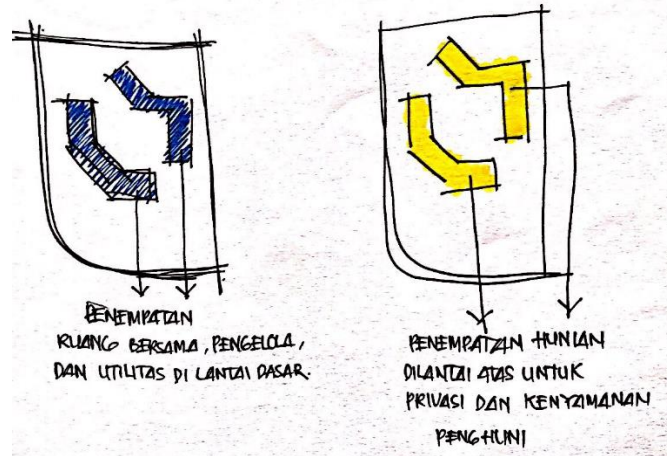 PENEMPATAN
RUANG BERSAMA, PENGELOLA,
DAN UTILITAS DI LANTAI DASAR.
PENEMPATAN HUNIAN
DILANTAI ATAS UNTUK
PRIVASI DAN KENYAMANAN
PENGHUNI